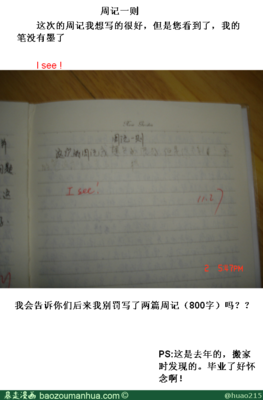 周记一则
这次的周记我想写的很好，但是您看到了，我的
笔没有墨了
I see !
周记一则
I see!
我会告诉你们后来我别罚写了两篇周记（800字）吗？？
PS:这是去年的，搬家
时发现的。毕业了好怀
念啊！
暴走漫画 baozoumanhua.com
@huao215